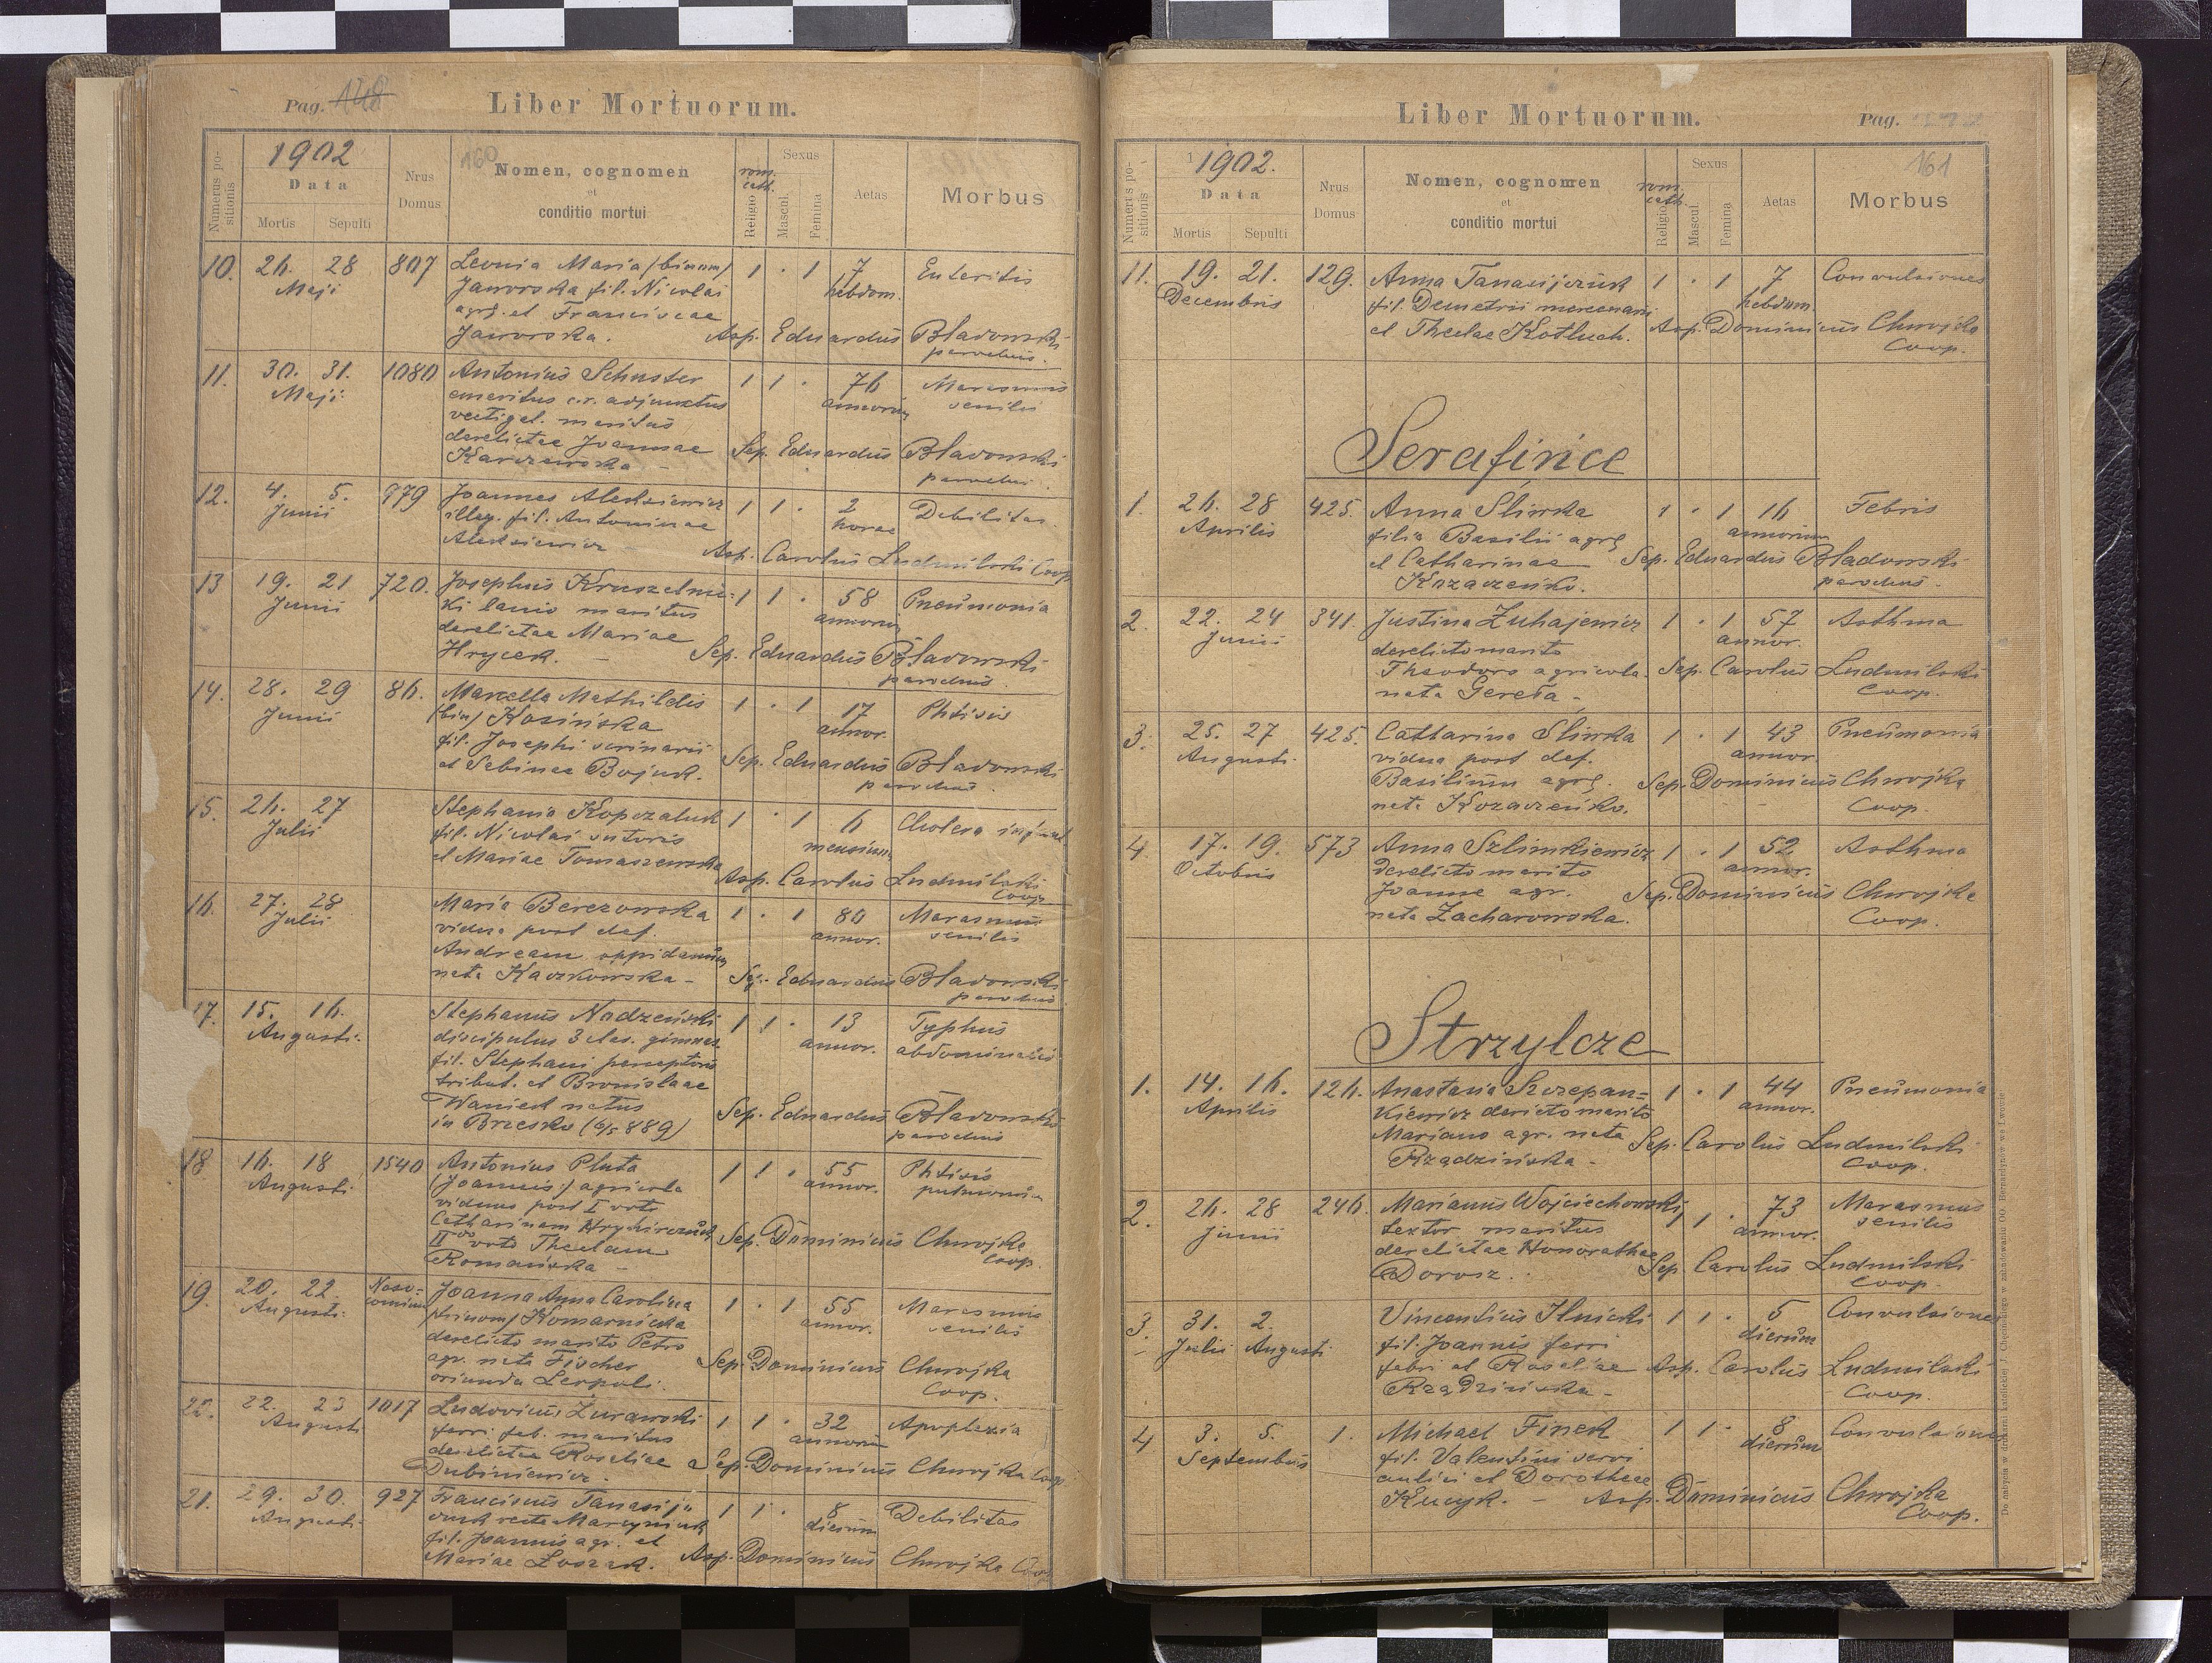 Pag. 148
Liber Mortuorum.
Numerus positionis
1902
Data
Mortis
Sepulti
Nrus
Domus
160
Nomen, cognomen
et
conditio mortui
rom.
cath.
Religio
Sexus
Mascul.
Femina
Aetas
Morbus
10. 26. 28 807 Leonia Maria (binom) 1 · 1 7 Enteritis
Maji Jaworska fil. Nicolai hebdom.
agr. et Franciscae
Jaworska. Asp. Eduardus Bładowski
parochus.
11. 30. 31. 1080 Antonius Schuster 1 1 · 76 Marasmus
Maji emeritus c.r. adjunctus annorum senilis
vectigal. maritus
derelictae Joannae Sep. Eduardus Bładowski
Karczewska – parochus.
12. 4. 5. 979 Joannes Aleksiewicz 1 1 · 2 Debilitas
Junii illeg. fil. Antoninae horae
Aleksiewicz – Asp. Carolus Ludmilski Coop
13 19. 21 720. Josephus Kruszelnic- 1 1 · 58 Pneumonia
Junii ki lanio maritus annorum
derelictae Mariae
Hrycek. – Sep. Eduardus Bładowski
parochus.
14. 28. 29 86. Marcella Mathildis 1 · 1 17 Phtisis
Junii (bin) Kosińska annor.
fil. Josephi
et Sebinae Bojuk. Sep. Eduardus Bładowski
parochus.
15. 26. 27 Stephania Kopczaluk 1 · 1 6 Cholera infant.
Julii fil. Nicolai sutoris mensium
et Mariae Tomaszewska
Asp. Carolus Ludmilski
Coop.
16. 27. 28 Maria Berezowska 1 · 1 80 Marasmus
Julii vidua post def. annor. senilis
Andream oppidanum
nata Kaczkowska – Sep. Eduardus Bładowski
parochus
17. 15. 16. Stephanus Nadzeński 1 1 · 13 Typhus
Augusti. discipulus 3 clas. gimnas. annor. abdominalis
fil. Stephani perceptoris
tribut. et Bronislaae
Waniek natus Sep. Eduardus Bładowski
in Brzesko (6/5 889) parochus
18 16. 18 1540 Antonius Pluta 1 1 · 55 Phtisis
Augusti (Joannis) agricola annor. pulmonum
viduus post I voto
Catharinam Hryhirczuk Sep. Dominicus Chwojka
II do voto Theclam Coop.
Romańska –
19. 20. 22. Noso- Joanna Anna Carolina 1 · 1 55 Marasmus
Augusti. comium (trinom) Komarnicka annor. senilis
derelicto marito Petro
agr. nata Fischer Sep. Dominicus Chwojka
oriunda Leopoli. Coop.
20. 22. 23 1017 Ludovicus Żurawski 1 1 · 32 Apoplexia
Augusti ferri fab. maritus annorum
derelictae Roseliae Sep. Dominicus Chwojka Coop
Dubiniewicz.
21. 29. 30. 927 Franciscus Tanasij- 1 1 · 8 Debilitas
Augusti czuk recte Marcyniuk dierum
fil. Joannis agr. et
Mariae Loszak. Asp. Dominicus Chwojka Coop
Liber Mortuorum.
Pag.
Numerus positionis
1902.
Data
Mortis
Sepulti
Nrus
Domus
Nomen, cognomen
et
conditio mortui
rom.
cath.
Religio
Sexus
Mascul.
Femina
Aetas
161
Morbus
11. 19. 21. 129. Anna Tanasijczuk 1 · 1 7 Convulsiones
Decembris fil. Demetrii mercenarii hebdom.
et Theclae Kotluch. Asp. Dominicus Chwojka
Coop.
Serafińce
1. 26. 28 425. Anna Śliwka 1 · 1 16 Febris
Aprilis filia Basilii agr. annorum
et Catharinae Sep. Eduardus Bładowski
Kozaczeńko. parochus.
2. 22. 24 341. Justina Łuhajewicz 1 · 1 57 Asthma
Junii derelicto marito annor.
Theodoro agricola. Sep. Carolus Ludmilski
nata Gereta – Coop.
3. 25. 27 425. Catharina Śliwka 1 · 1 43 Pneumonia
Augusti. vidua post def. annor.
Basilium agr. Sep. Dominicus Chwojka
nata Kozaczeńko. Coop.
4 17. 19. 573 Anna Szlimkiewicz 1 · 1 52 Asthma
Octobris derelicto marito annor.
Joanne agr. Sep. Dominicus Chwojka
nata Zacharowska. Coop.
Strzylcze
1. 14. 16. 126. Anastasia Szczepan- 1 · 1 44 Pneumonia
Aprilis kiewicz derelicto marito annor.
Mariano agr. nata Sep. Carolus Ludmilski
Rządzińska – Coop.
2. 26. 28 246. Marianus Wojciechowski 1 · 73 Marasmus
Junii textor maritus annor. senilis
derelictae Honorathae
Dorosz. Sep. Carolus Ludmilski
Coop.
3. 31. 2. Vincentius Ilnicki 1 1 · 5 Convulsiones
Julii Augusti fil. Joannis ferri dierum
fabri et Roseliae Asp. Carolus Ludmilski
Rządzińska – Coop.
4 3. 5. 1. Michael Finek 1 1 · 8 Convulsiones
Septembris fil. Valentini servi dierum
aulici et Dorotheae
Kucyk. – Asp. Dominicus Chwojka
Coop.
Do nabycia w drukarni katolickiej J. Chęcińskiego w zabudowaniu OO. Bernardynów we Lwowie